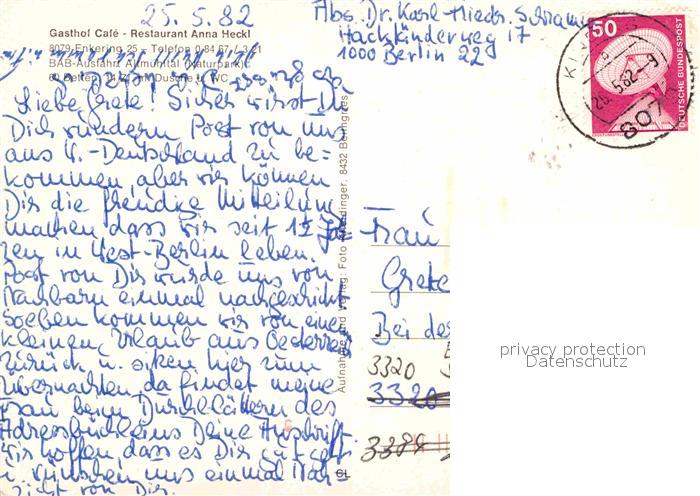 25.5.82
Abs. Dr. Karl-Friedr. Schramm
Hackländerweg 17
1000 Berlin 22
Gasthof Café - Restaurant Anna Heckl
8079 Enkering 25 - Telefon 0 84 67 / 3 21
BAB-Ausfahrt Altmühltal (Naturpark)
60 Betten, teilw. m. Dusche u. WC
50
DEUTSCHE BUNDESPOST
8079
Liebe Grete! Sicher wirst Du
Dich wundern Post von uns
aus W.-Deutschland zu be-
kommen, aber wir können
Dir die freudige Mitteilung
machen dass wir seit 1½ Jah-
ren in West-Berlin leben.
Post von Dir wurde uns von
Nachbarn einmal nachgeschickt
Soeben kommen wir von einem
kleinen Urlaub aus Oesterreich
zurück u. sitzen hier zum
übernachten, da findet meine
Frau beim Durchblättern des
Adressbüchleins Deine Anschrift.
Wir hoffen dass es Dir gut geht
u. wünschen uns einmal Nach-
richt von Dir.
Aufnahme und Verlag: Foto 8432 Beilngries
CL
Frau
Grete
Bei der
3320
3320
privacy protection
Datenschutz